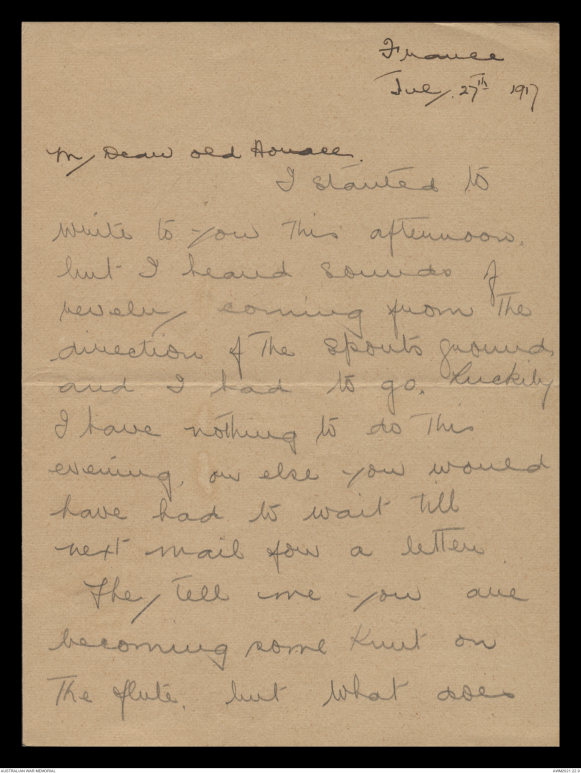 France
July. 27th 1917
My Dear old Horace.
I started to
write to you this afternoon,
but I heard sounds of
revelry coming from the
direction of the sports ground,
and I had to go. Luckily
I have nothing to do this
evening, or else you would
have had to wait till
next mail for a letter.
They tell me you are
becoming some Knut on
the flute, but what does
AUSTRALIAN WAR MEMORIAL